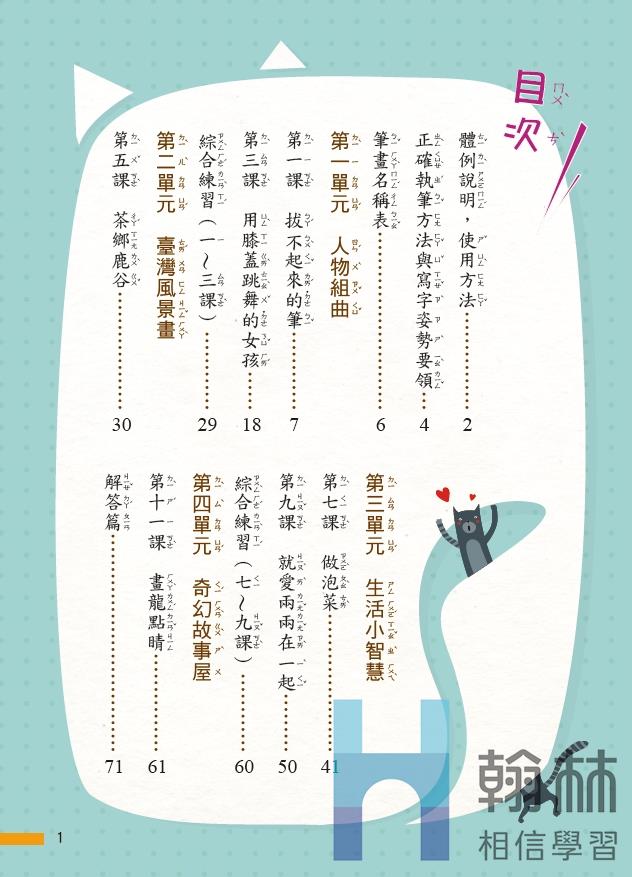 目次
體例說明，使用方法……2
正確執筆方法與寫字姿勢要領……4
筆畫名稱表……6
第一單元 人物組曲
第一課 拔不起來的筆……7
第三課 用膝蓋跳舞的女孩……18
綜合練習（一～三課）……29
第二單元 臺灣風景畫
第五課 茶鄉鹿谷……30
第三單元 生活小智慧
第七課 做泡菜……41
第九課 就愛兩兩在一起……50
綜合練習（七～九課）……60
第四單元 奇幻故事屋
第十一課 畫龍點睛……61
解答篇……71
翰林
相信學習
1